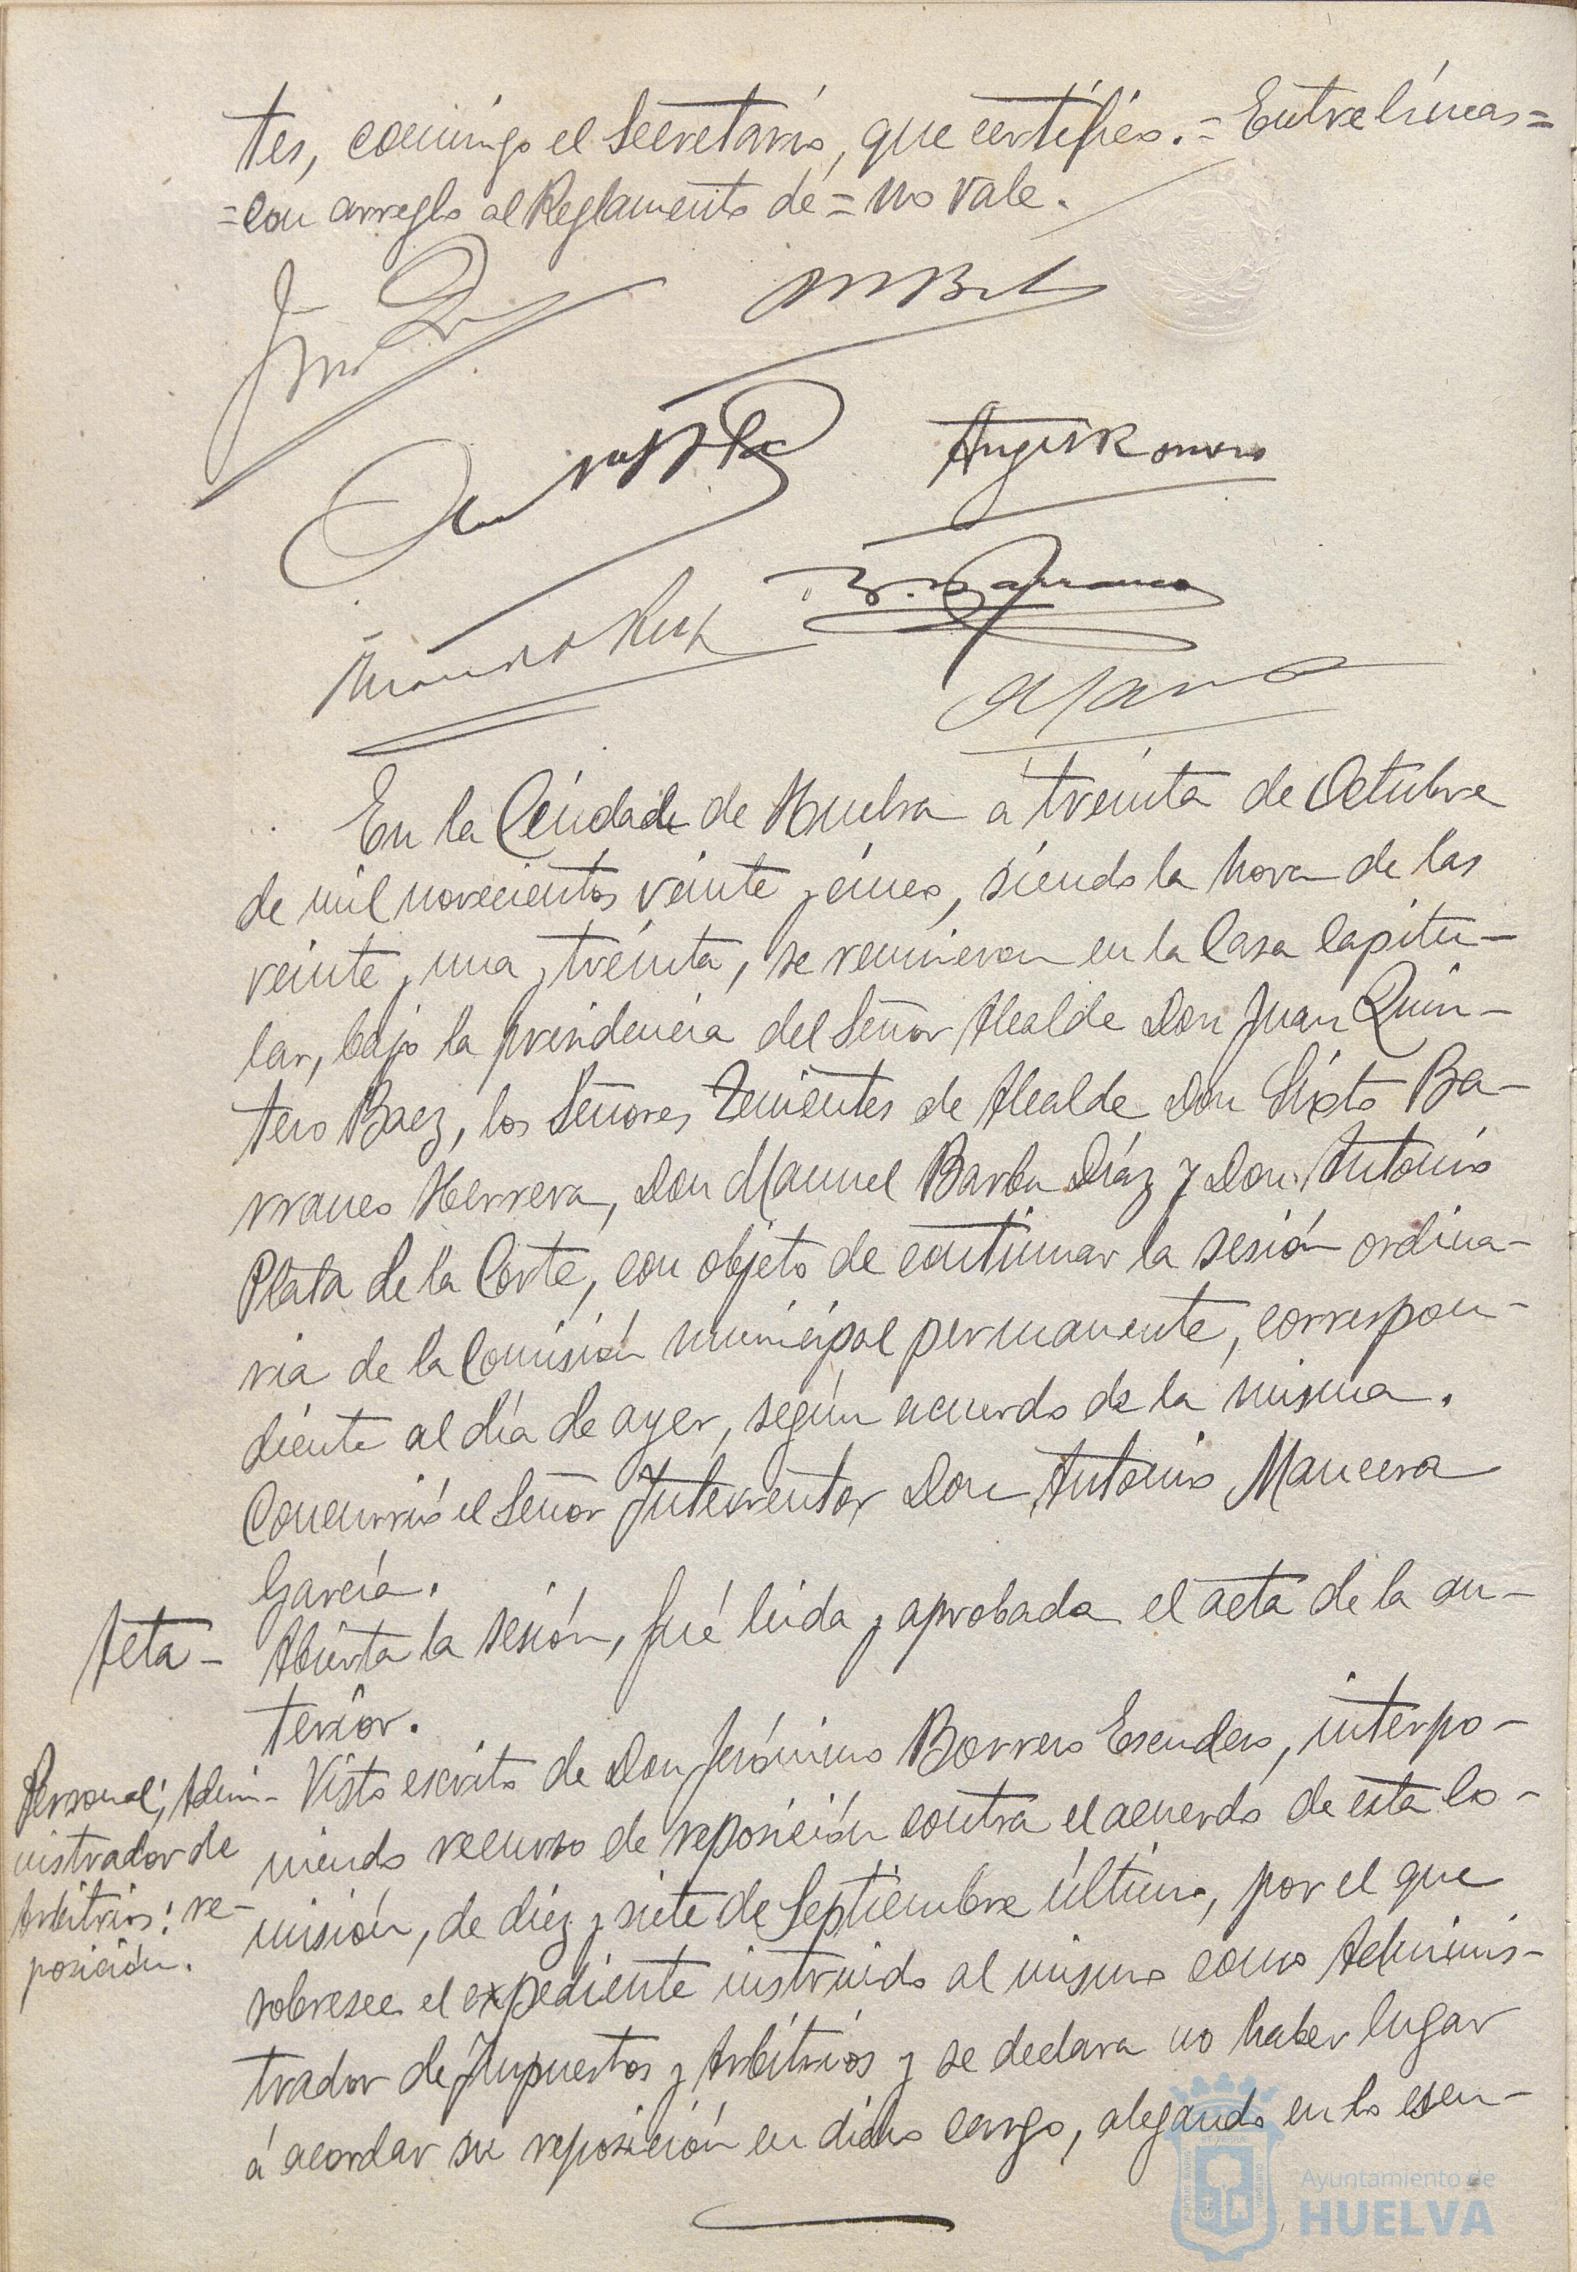 tes, conmigo el Secretario, que certifico. = Entre líneas =
= con arreglo al Reglamento de = no vale.
Angel Romero
S. Barranco
En la Ciudad de Huelva a treinta de Octubre
de mil novecientos veinte y cinco, siendo la hora de las
veinte y una y treinta, se reunieron en la Casa Capitu-
lar, bajo la presidencia del Señor Alcalde Don Juan Quin-
tero Baez, los Señores Tenientes de Alcalde Don Sixto Ba-
rranco Herrera, Don Manuel Barba Díaz y Don Antonio
Plata de la Corte, con objeto de continuar la sesión ordina-
ria de la Comisión municipal permanente, correspon-
diente al día de ayer, según acuerdo de la misma.
Concurrió el Señor Interventor Don Antonio Mancera
García.
Acta - Abierta la sesión, fué leida y aprobada el acta de la an-
terior.
Personal; Admi-
nistrador de
Arbitrios: re-
posición.
Visto escrito de Don Jerónimo Borrero Escudero, interpo-
niendo recurso de reposición contra el acuerdo de esta Co-
misión, de diez y siete de Septiembre último, por el que
sobresee el expediente instruido al mismo como Adminis-
trador de Impuestos y Arbitrios y se declara no haber lugar
á acordar su reposición en dicho cargo, alegando en lo esen-
Ayuntamiento de
HUELVA